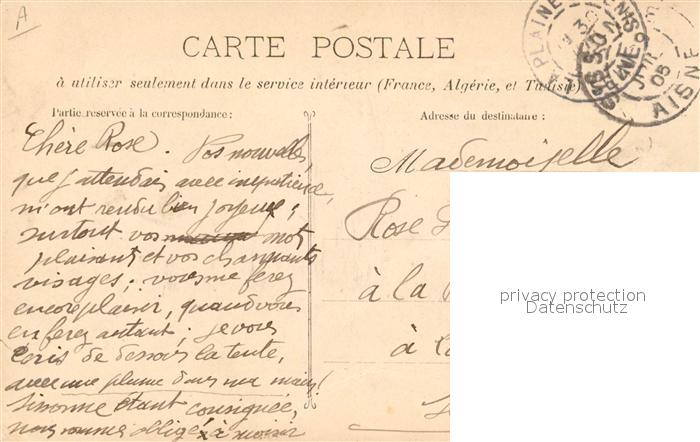 A
CARTE POSTALE
à utiliser seulement dans le service intérieur (France, Algérie, et Tunisie)
Partie reservée à la correspondance :
Adresse du destinataire :
Chère Rose. Vos nouvelles,
que j'attendais avec impatience,
m'ont rendu bien joyeux ;
surtout vos mot
plaisant et vos charmants
visages ; vous me ferez
encore plaisir, quand vous
en ferez autant ; je vous
écris de dessous la tente,
avec une plume dans ma main !
étant consignée,
nous sommes obligés à
Mademoiselle
Rose
à la
à
PLAINE
DENIS
05
AISNE
privacy protection
Datenschutz